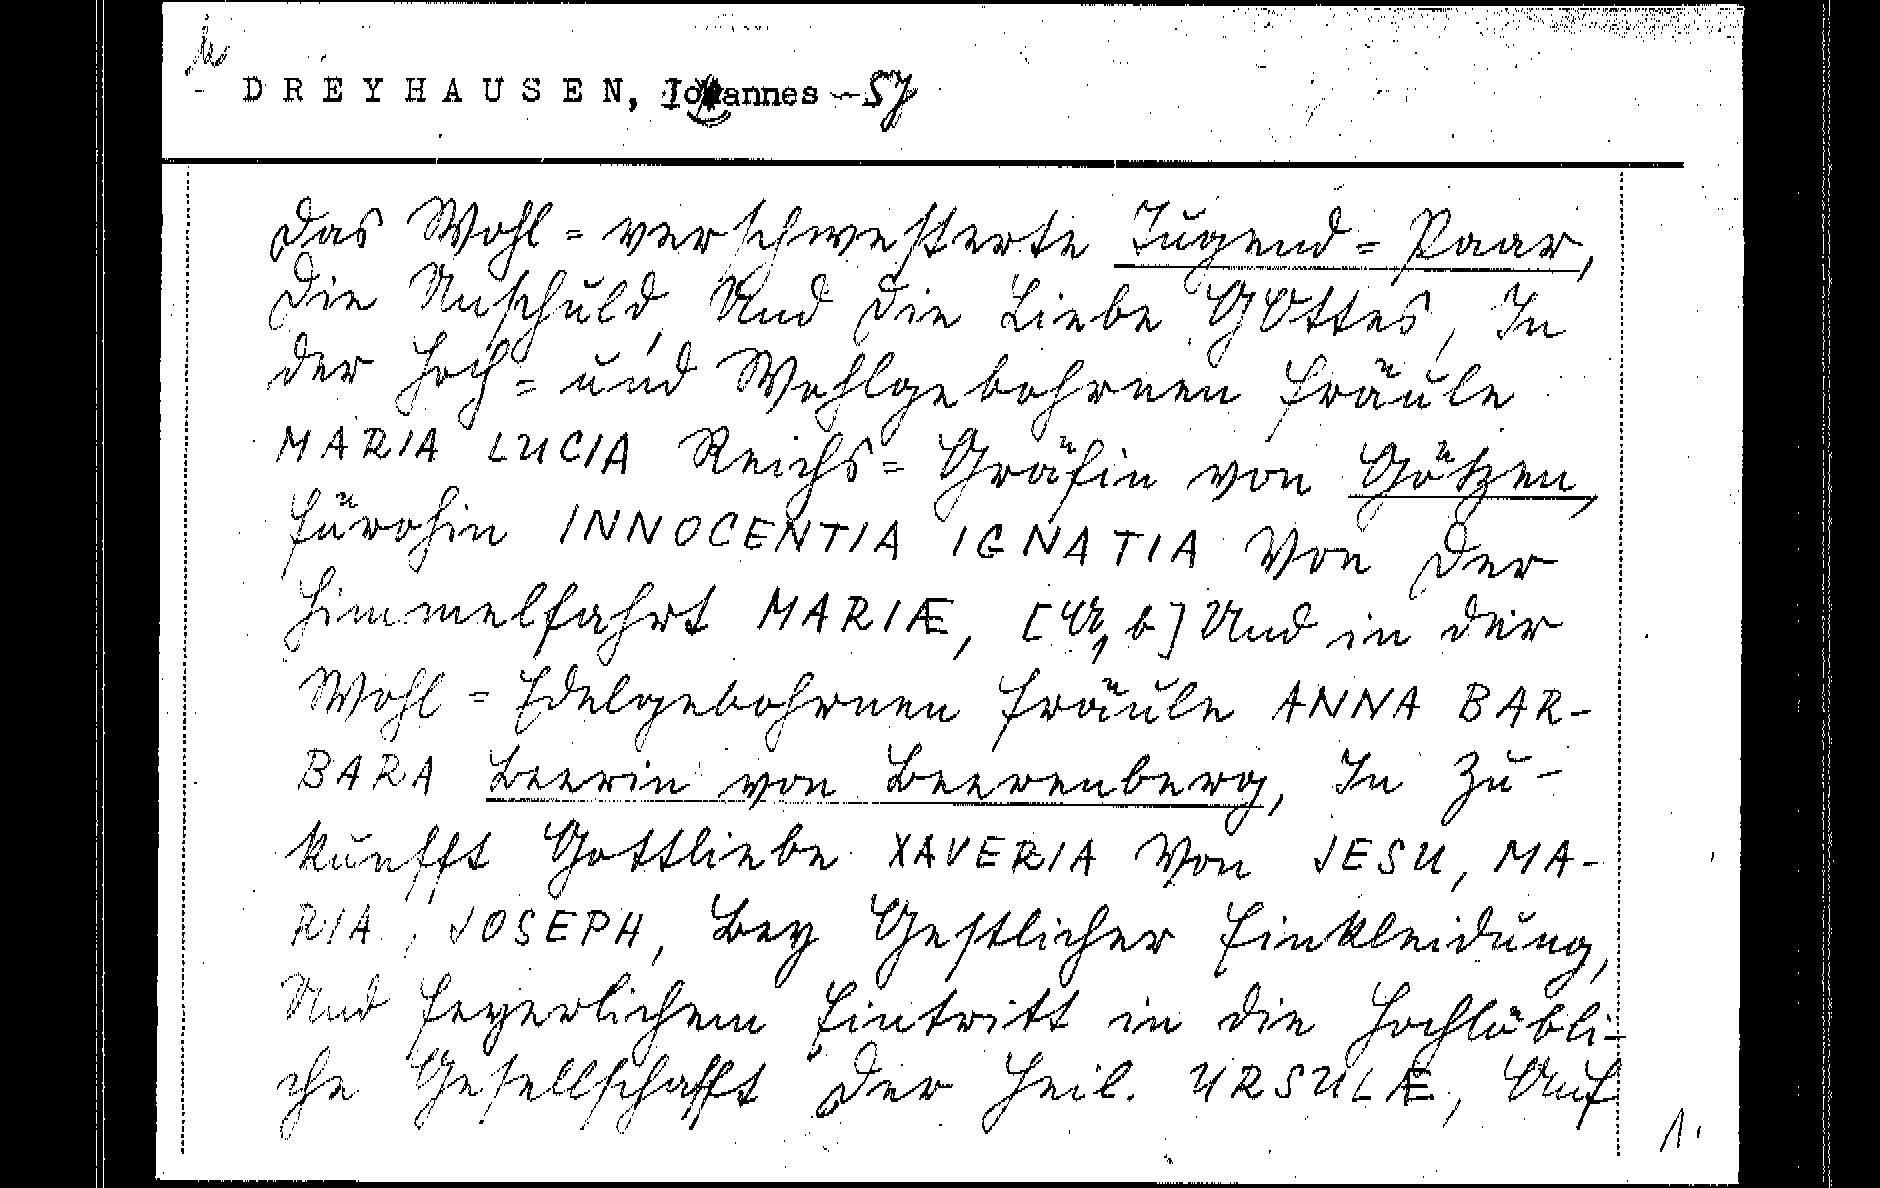 DREYHAUSEN, Johannes — SJ
Das Wohl=verschwesterte Tugend=Paar,
Die Unschuld, Und Die Liebe GOttes, In
der Hoch= und Wohlgebohrnen Fräule
MARIA LUCIA Reichs=Gräfin von Götzen,
fürohin INNOCENTIA IGNATIA Von Der
Himmelfahrt MARIÆ, [A₁b] Und in der
Wohl=Edelgebohrnen Fräule ANNA BAR-
BARA Beerin von Beerenberg, In Zu-
kunfft Gottliebe XAVERIA Von JESU, MA-
RIA, JOSEPH, Bey Gestlicher Einkleidung,
Und Feyerlichem Eintritt in die Hochlöbli-
che Gesellschafft Der Heil. URSULÆ, Auf
1.